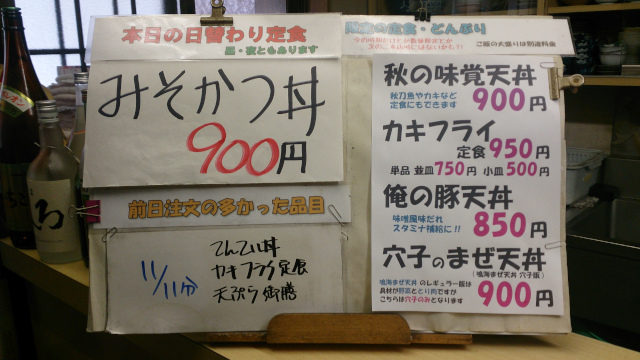 本日の日替わり定食
昼・夜ともあります
みそかつ丼
900円
前日注文の多かった品目
11/11分
てんてい丼
カキフライ定食
天ぷら御膳
の定食・どんぶり
ご飯の大盛りは別途料金
秋の味覚天丼
秋刀魚やカキなど
定食にもできます
900円
カキフライ
定食950円
単品 並皿750円 小皿500円
俺の豚天丼
味噌風味だれ
スタミナ補給に!!
850円
穴子のまぜ天丼
(鳴海まぜ天丼 穴子版)
鳴海まぜ天丼 のレギュラー版は
具材が野菜ととり肉ですが
こちらは穴子のみとなります
900円